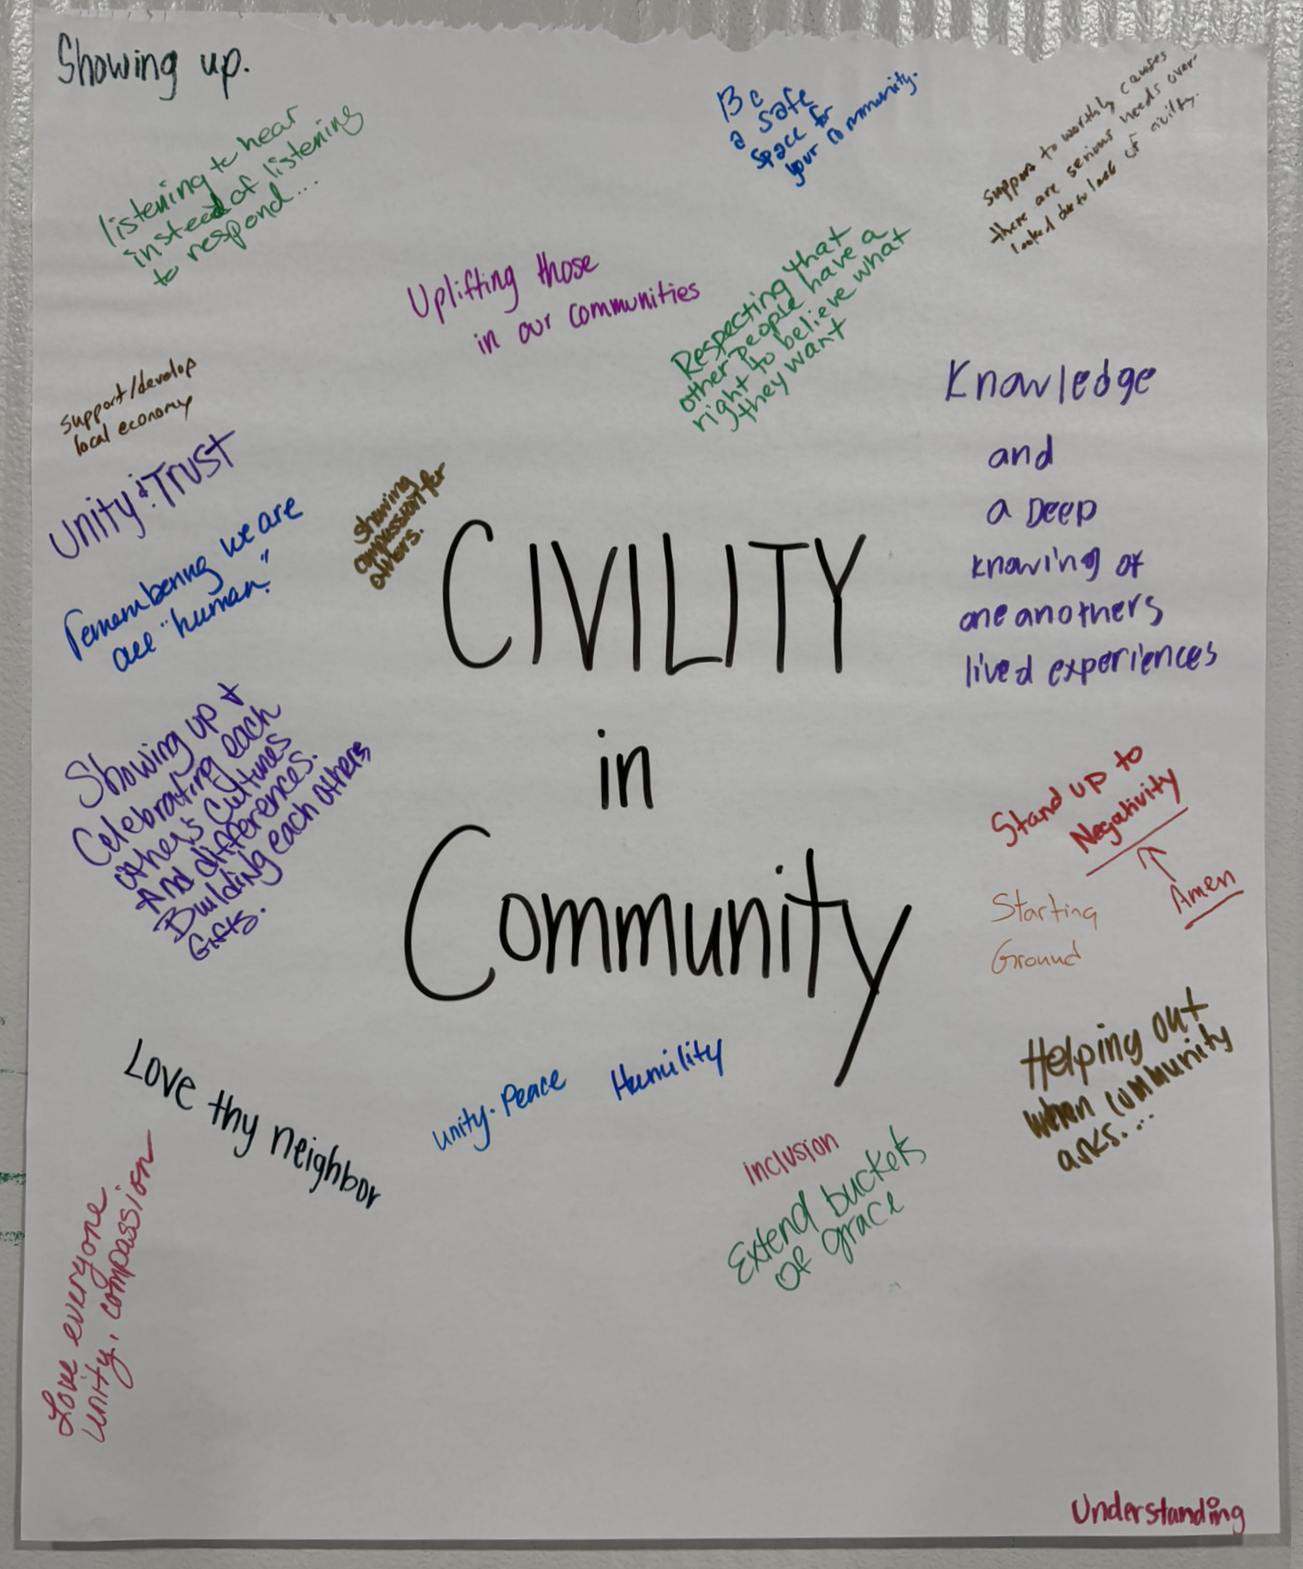 Showing up.
listening to hear
instead of listening
to respond...
Be
a safe
space for
your community.
support to worthly causes
there are serious needs over
looked due to lack of civility.
Uplifting those
in our communities
Respecting that
other people have a
right to believe what
they want
support/develop
local economy
Unity & Trust
remembering we are
all "human."
showing
compassion for
others.
Knowledge
and
a Deep
knowing of
one anothers
lived experiences
CIVILITY
in
Community
Showing up &
Celebrating each
others cultures
And differences.
Building each others
Gifts.
Stand up to
Negativity
Amen
Starting
Ground
Helping out
when community
asks....
Love thy neighbor
unity. Peace
Humility
inclusion
Extend buckets
of grace
Love everyone.
Unity, compassion
Understanding